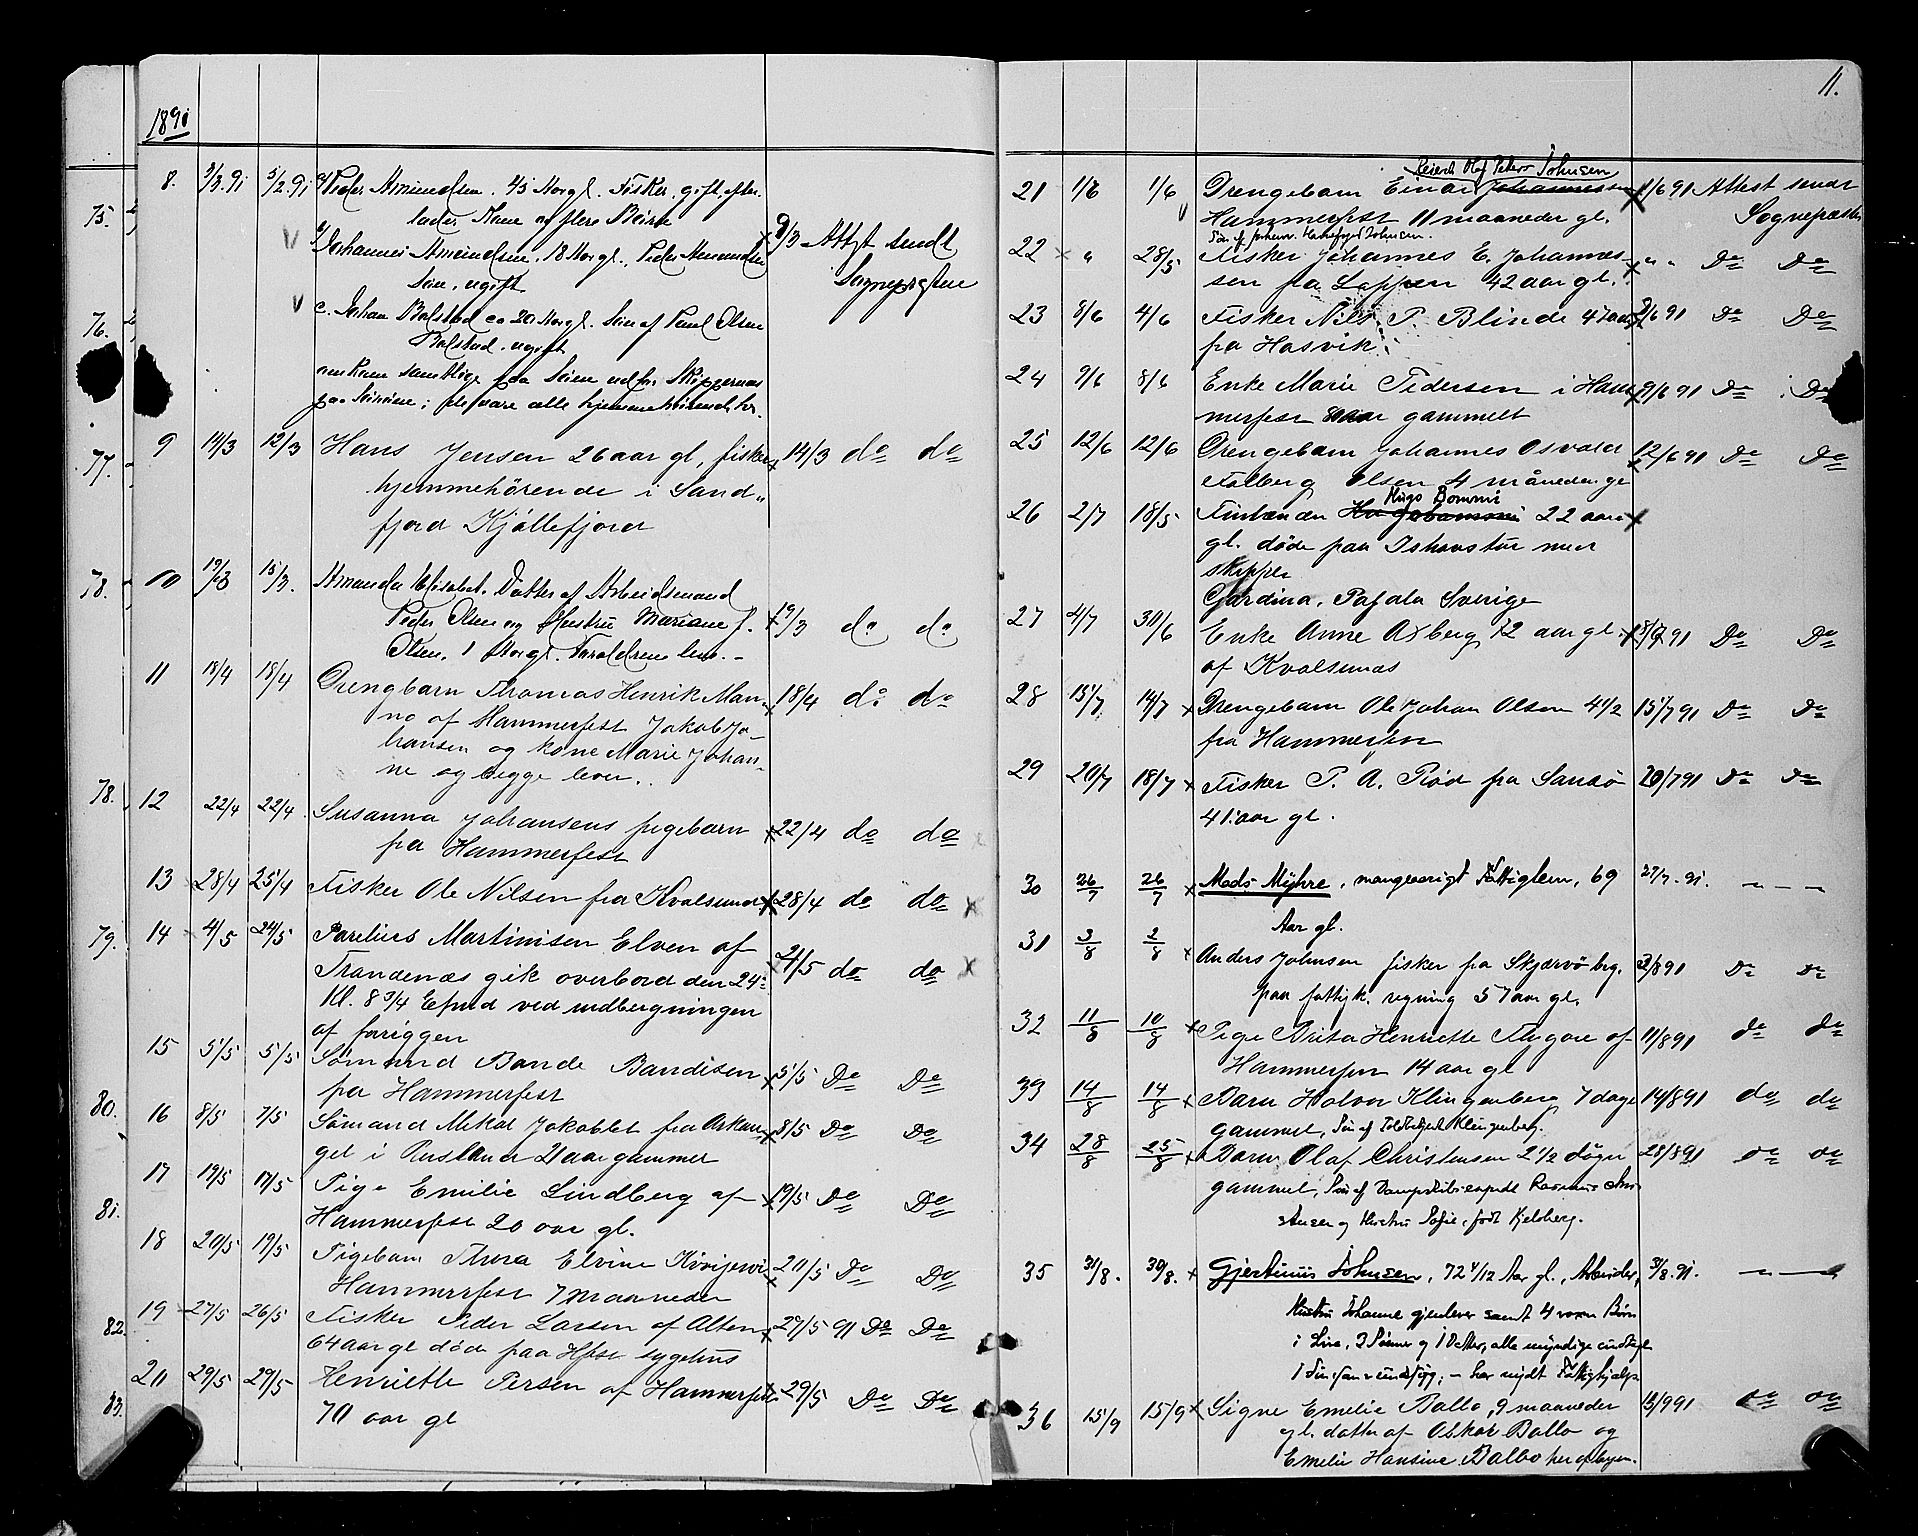 1891
8. 3/3.91 5/2.91 a Peder Amundsen. 45 Aar gl. Fisker, gift, efter-
lader Kone og flere Børn
b Johannes Amundsen, 18 Aar gl., Peder Amundsen
Søn, ugift
9/3 Attest sendt
Sognepresten
c. Johan Balstad ca 20 Aar gl. Søn af Paul Olsen
Balstad, ugift
omkom samtlige paa Søen
9 14/3 12/3 Hans Jensen 26 aar gl, fisker 14/3 do do
hjemmehörende i Sand„
fjord Kjöllefjord
10 19/3 15/3. Amanda Elisabet. Datter af Arbeidsmand
Peder Olsen og Hustru Mariane f. 19/3 do do
Olsen, 1 Aar gl. Foreldrene lever. -
11 18/4 18/4 Drengbarn Thomas Henrik Man- 18/4 do do
no af Hammerfest Jakob Jo-
hansen og kone Marie Johan-
ne og begge lever.
12 22/4 22/4 Susanna Johansens pigebarn 22/4 do do
fra Hammerfest
13 28/4 25/4 Fisker Ole Nilsen fra Kvalsund 28/4 do do
14 4/5 24/5 Parelius Martinisen Elven af
Trandenæs gik overbord den 24- 24/5 do do
Kl. 8 3/4 Efmd ved indbergningen
af foriggen
15 5/5 5/5 Sömand Bande Bandisen 5/5 Do Do
fra Hammerfest
16 8/5 7/5 Sömand Mekal Jakoblet fra Arkan- 8/5 Do Do
gel i Rusland 21 aar gammel
17 19/5 17/5 Pige Emilie Lindberg af 19/5 Do Do
Hammerfest 20 aar gl.
18 20/5 19/5 Pigebarn Thora Elvine 20/5 Do Do
Hammerfest 7 maaneder
19 27/5 26/5 Fisker Peder Larsen af Alten 27/5 91 Do Do
64 aar gl döde paa Hfest sygehus
20 29/5 29/5 Henriette Persen af Hammerfest 29/5 Do Do
70 aar gl
75.
76.
77.
78.
78.
79.
80.
81.
82.
83.
11.
Olaf Peter Johnsen
21 1/6 1/6 Drengebarn Einar Johannesen 1/6 91 Attest sendt
Hammerfest 11 maaneder gl. Sognepræsten
Søn af Johnsen.
22 " 28/5 Fisker Johannes E. Johannes- " " Do Do
sen fra Loppen 42 aar gl.
23 8/6 4/6 Fisker Nils P. Blind 47 aar 8/6 91 Do Do
fra Hasvik
24 9/6 8/6 Enke Marie Pedersen i Ham- 9/6 91 Do Do
merfest gammelt
25 12/6 12/6 Drengebarn Johannes Osvald 12/6 91 Do Do
Falberg Olsen 4 måneder gl
Hugo Bommi
26 2/7 18/5 Finlænder 22 aar
gl. döde paa Ishavstur med
skipper
Gardina, Pajala Sverige
27 4/7 30/6 Enke Anne Axberg 72 aar gl. 91 Do Do
af Kvalsunds
28 15/7 14/7 Drengebarn Ole Johan Olsen 4 1/2 15/7 91 Do Do
fra Hammerfest
29 20/7 18/7 Fisker P. A. Röd fra Sandö 20/7 91 Do Do
41 aar gl.
30 26/7 26/7 Mads Myhre, mangeaarigt Fattiglem, 69 27/7.91. — — —
Aar gl.
31 3/8 2/8 Anders Johnsen fisker fra Skjærvö beg. 3/8 91 Do Do
paa fattigk. regning 57 aar gl.
32 11/8 10/8 Pige Brita Henriette af 11/8 91 do do
Hammerfest 14 aar gl
33 14/8 14/8 Barn Halvor Klingenberg 7 dage 14/8 91 do do
gammel, Søn af Toldbetjent Klingenberg.
34 28/8 25/8 Barn Olaf Christensen 2 1/2 dögn 28/8 91 do do
gammel, Søn af Rasmus Chri-
stensen og Hustru Sofie, født Kjelsberg.
35 31/8. 30/8. Gjertinius Johnsen, 72 4/12 Aar gl., Arbeider, 31/8.91. — — —
Hustru Johanne gjenlever samt 4 voxne Børn
i Live, 3 Sønner og 1 Datter, alle myndige undtagt
1 Søn, - har nydt Fattighjælp
36 15/9 15/9 Signe Emelie Ballo, 9 maaneder 15/9 91 do do
gl. datter af Oskar Ballo og
Emelie Hansine Balbo her af byen.